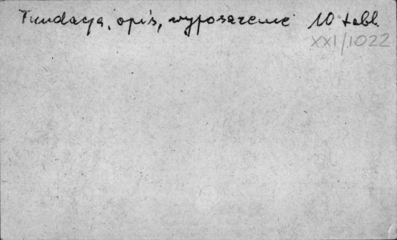 Fundacja, opis, wyposażenie 10 tabl.
XXI/1022